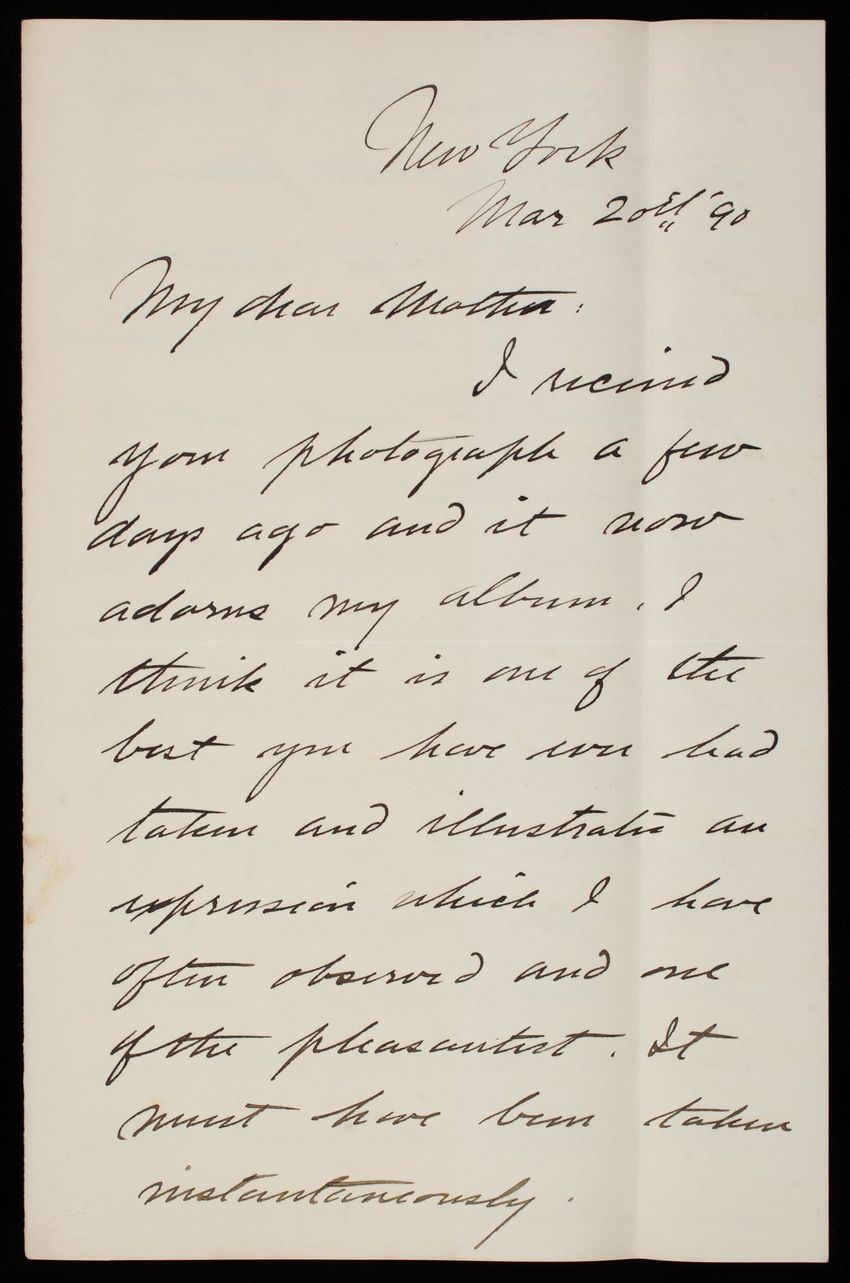 New York
Mar 20th '90
My dear Mother:
I received
your photograph a few
days ago and it now
adorns my album. I
think it is one of the
best you have ever had
taken and illustrates an
expression which I have
often observed and one
of the pleasantest. It
must have been taken
instantaneously.